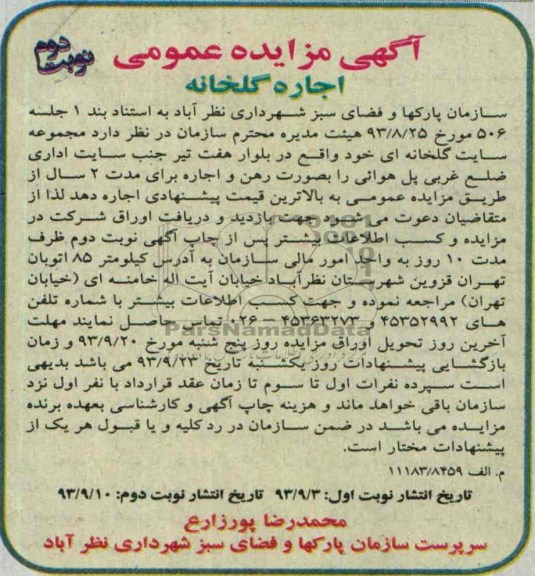 آگهی مزایده عمومی
نوبت دوم
اجاره گلخانه
سازمان پارکها و فضای سبز شهرداری نظر آباد به استناد بند ۱ جلسه
۵۰۶ مورخ ۹۳/۸/۲۵ هیئت مدیره محترم سازمان در نظر دارد مجموعه
سایت گلخانه ای خود واقع در بلوار هفت تیر جنب سایت اداری
ضلع غربی پل هوائی را بصورت رهن و اجاره برای مدت ۲ سال از
طریق مزایده عمومی به بالاترین قیمت پیشنهادی اجاره دهد لذا از
متقاضیان دعوت می شود جهت بازدید و دریافت اوراق شرکت در
مزایده و کسب اطلاعات بیشتر پس از چاپ آگهی نوبت دوم ظرف
مدت ۱۰ روز به واحد امور مالی سازمان به آدرس کیلومتر ۸۵ اتوبان
تهران قزوین شهرستان نظرآباد خیابان آیت اله خامنه ای (خیابان
تهران) مراجعه نموده و جهت کسب اطلاعات بیشتر با شماره تلفن
های ۴۵۳۵۲۹۹۲ و ۴۵۳۶۳۲۷۳ – ۰۲۶ تماس حاصل نمایند مهلت
ParsNamadData
آخرین روز تحویل اوراق مزایده روز پنج شنبه مورخ ۹۳/۹/۲۰ و زمان
بازگشایی پیشنهادات روز یکشنبه تاریخ ۹۳/۹/۲۳ می باشد بدیهی
است سپرده نفرات اول تا سوم تا زمان عقد قرارداد با نفر اول نزد
سازمان باقی خواهد ماند و هزینه چاپ آگهی و کارشناسی بعهده برنده
مزایده می باشد در ضمن سازمان در رد کلیه و یا قبول هر یک از
پیشنهادات مختار است.
م. الف ۱۱۱۸۳/۸۴۵۹
تاریخ انتشار نوبت اول: ۹۳/۹/۳ تاریخ انتشار نوبت دوم: ۹۳/۹/۱۰
محمدرضا پورزارع
سرپرست سازمان پارکها و فضای سبز شهرداری نظر آباد